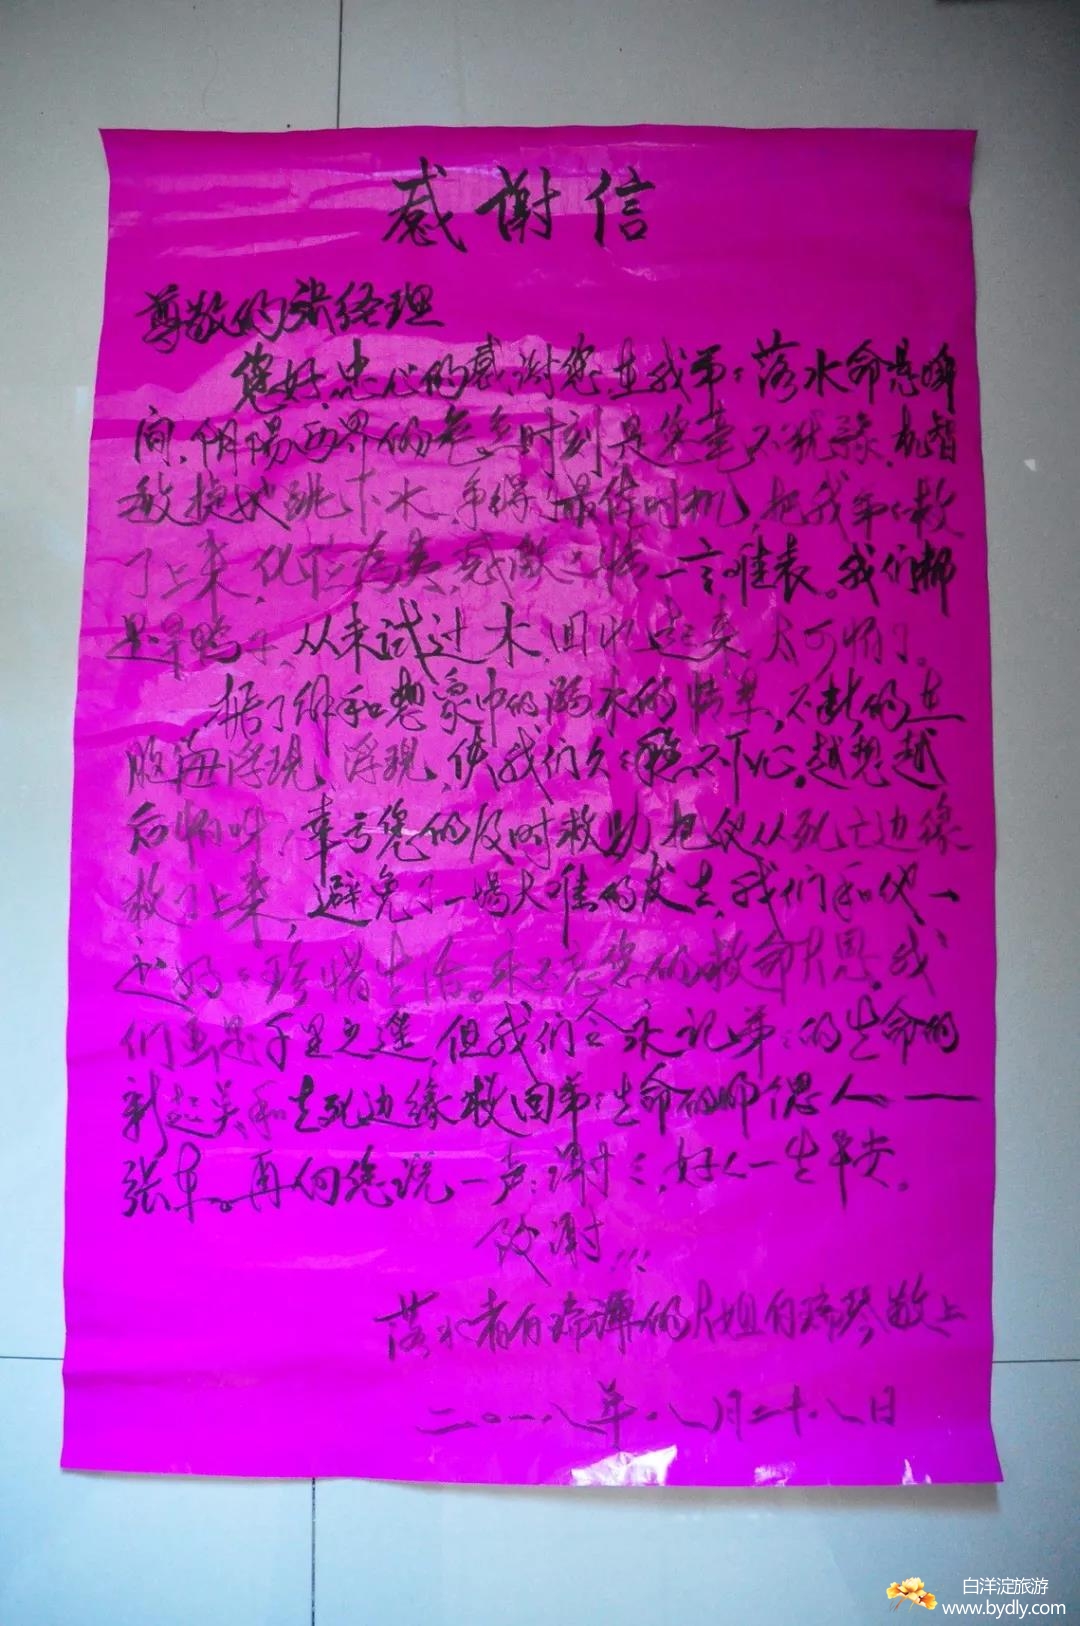 感谢信
尊敬的张经理
您好,忠心的感谢您在我弟:落水命悬瞬
间,阴阳两界的危急时刻,是您毫不犹豫,机智
敢捷地跳下水,争得了最佳时机,把我弟:救
了上来,化险为夷,感激之情一言难表。我们都
是旱鸭子,从未试过水,回忆起来太可怕了。
据了解和想象中的溺水的情景,不断的在
脑海浮现,浮现,使我们久:稳不下心。越想越
后怕呀!幸亏您的及时救助,把他从死亡边缘
救了上来,避免了一场大难的发生,我们和他一
定好:珍惜生活。永不忘您的救命大恩。我
们虽是千里之遥,但我们会永记弟:的生命的
新起点和生死边缘救回弟:生命的那偶人——
张军。再向您说一声:谢:,好人一生平安。
致谢!!!
落水者白瑞潭的大姐白瑞琴敬上
二〇一八年.八月二十八日
白洋淀旅游
www.bydly.com